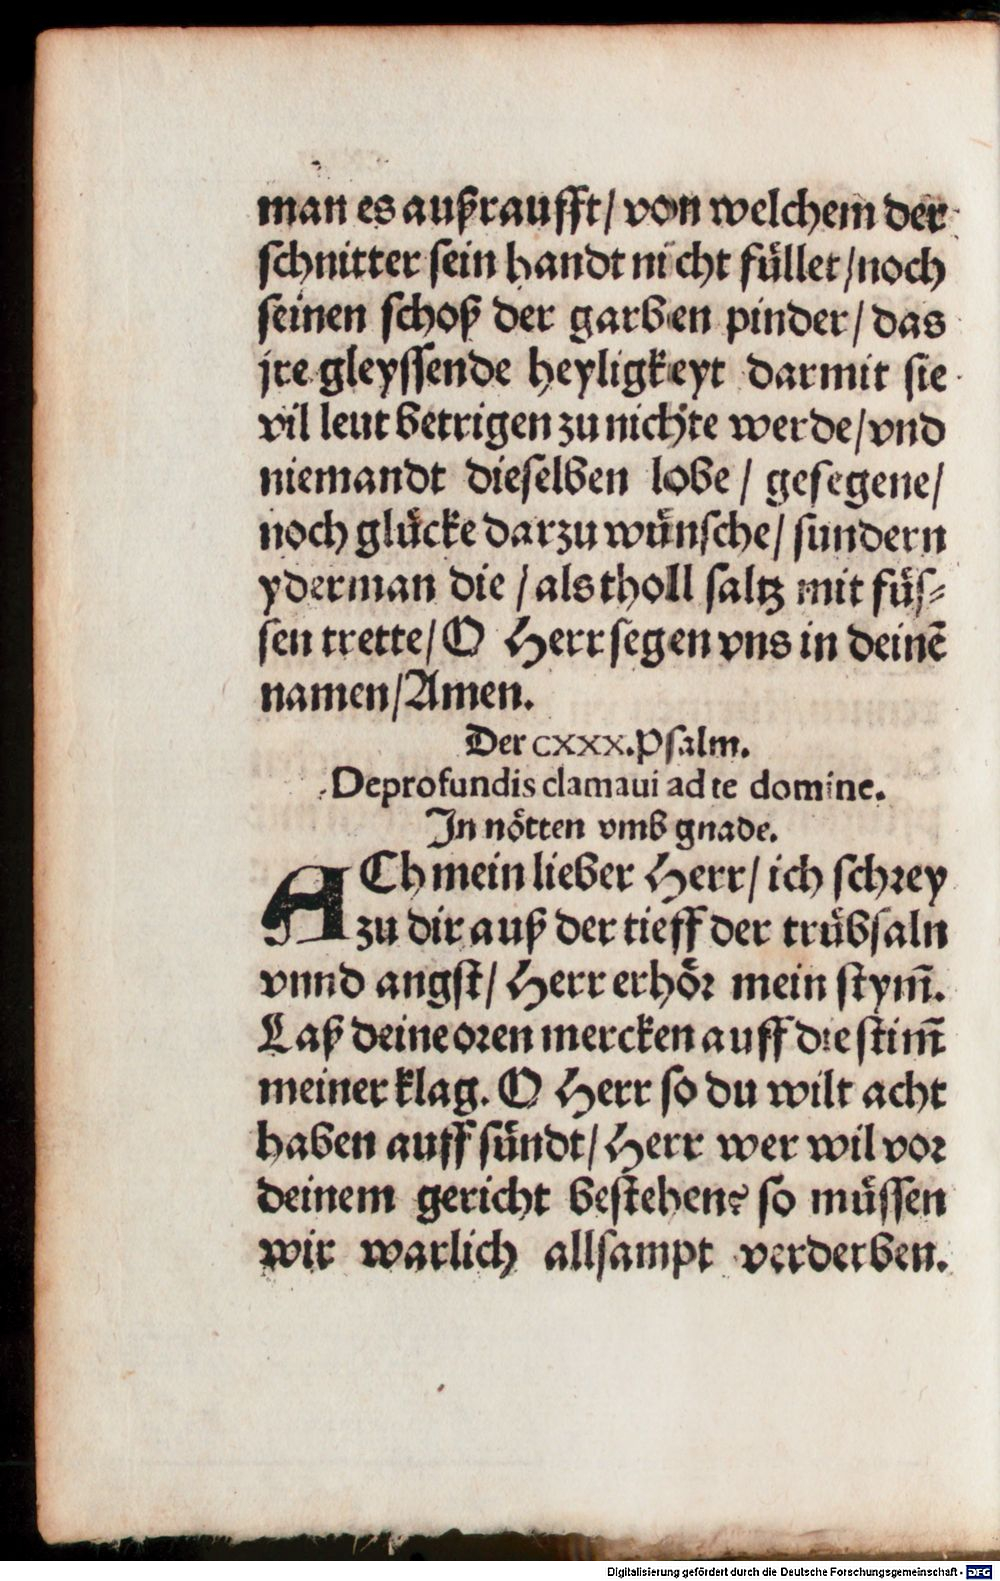 man es außraufft/ von welchem der
schnitter sein handt nicht füllet/noch
seinen schoß der garben pinder/ das
jre gleyssende heyligkeyt darmit sie
vil leut betrigen zu nichte werde/vnd
niemandt dieselben lobe/ gesegene/
noch glücke darzu wünsche/ sundern
yderman die/als tholl saltz mit füs-
sen trette/O Herr segen vns in deinē
namen/Amen.
Der cxxx.Psalm.
Deprofundis clamaui ad te domine.
In nötten vmb gnade.
ACh mein lieber Herr/ ich schrey
zu dir auß der tieff der trübsaln
vnnd angst/ Herr erhör mein stym̄.
Laß deine oren mercken auff die stim̄
meiner klag. O Herr so du wilt acht
haben auff sündt/Herr wer wil vor
deinem gericht bestehen? so müssen
wir warlich allsampt verderben.
Digitalisierung gefördert durch die Deutsche Forschungsgemeinschaft - DFG